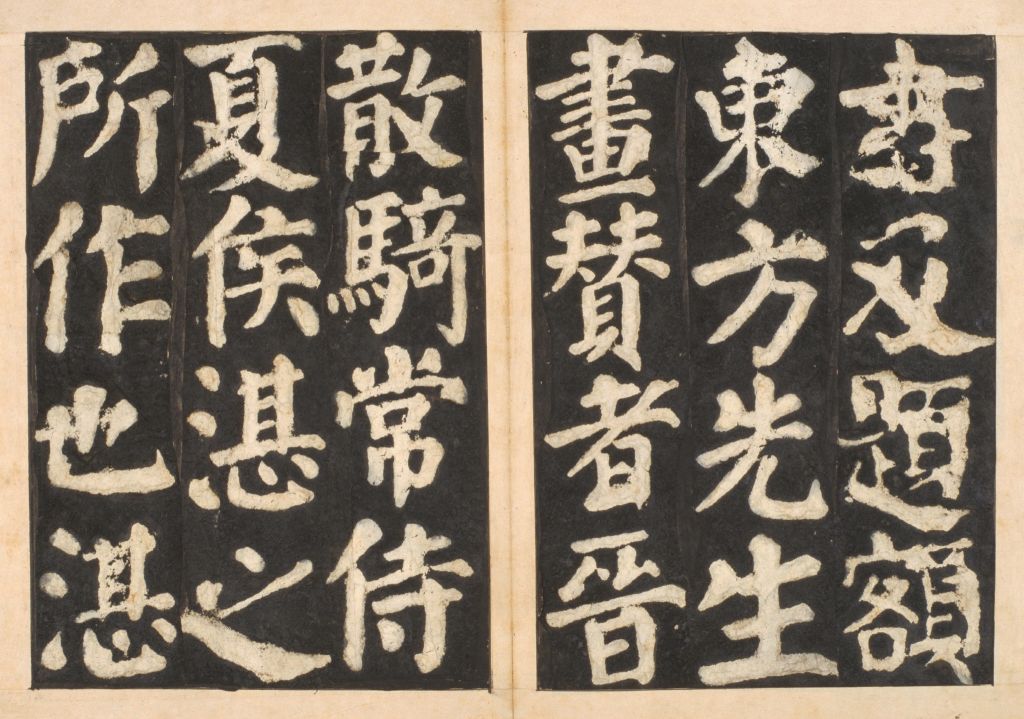 書及題額
東方先生
畫贊者晉
散騎常侍
夏侯湛之
所作也湛